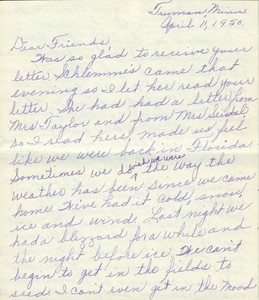 Truman Minn
April 11, 1950.
Dear Friends
Was so glad to receive your
letter Schlemmes came that
evening so I let her read your
letter. She had had a letter from
Mrs Taylor and from Mrs Seidel
so I read hers, made us feel
like we were back in Florida
Sometimes we do wish we were the way the
weather has been since we came
home. We've had it cold, snow,
ice and wind. Last night we
had a blizzard for a while and
the night before ice. We can't
begin to get in the fields to
seed. I can't even get in the mood